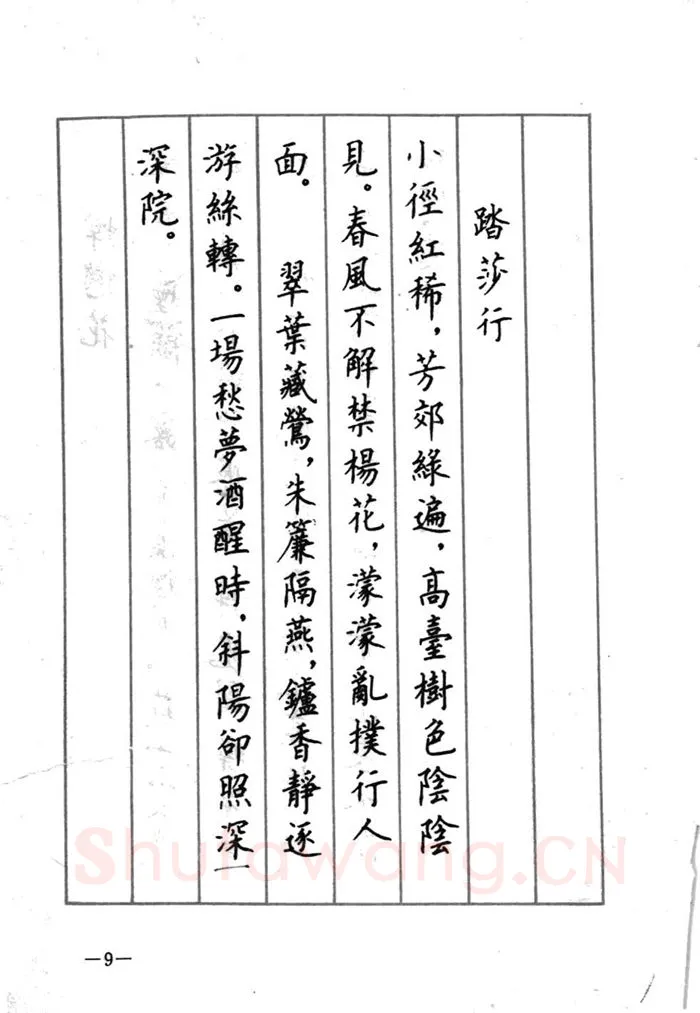 踏莎行
小徑紅稀，芳郊綠遍，高臺樹色陰陰
見。春風不解禁楊花，濛濛亂撲行人
面。　翠葉藏鶯，朱簾隔燕，鑪香靜逐
游絲轉。一場愁夢酒醒時，斜陽卻照深一
深院。
—9—
Shufawang.CN